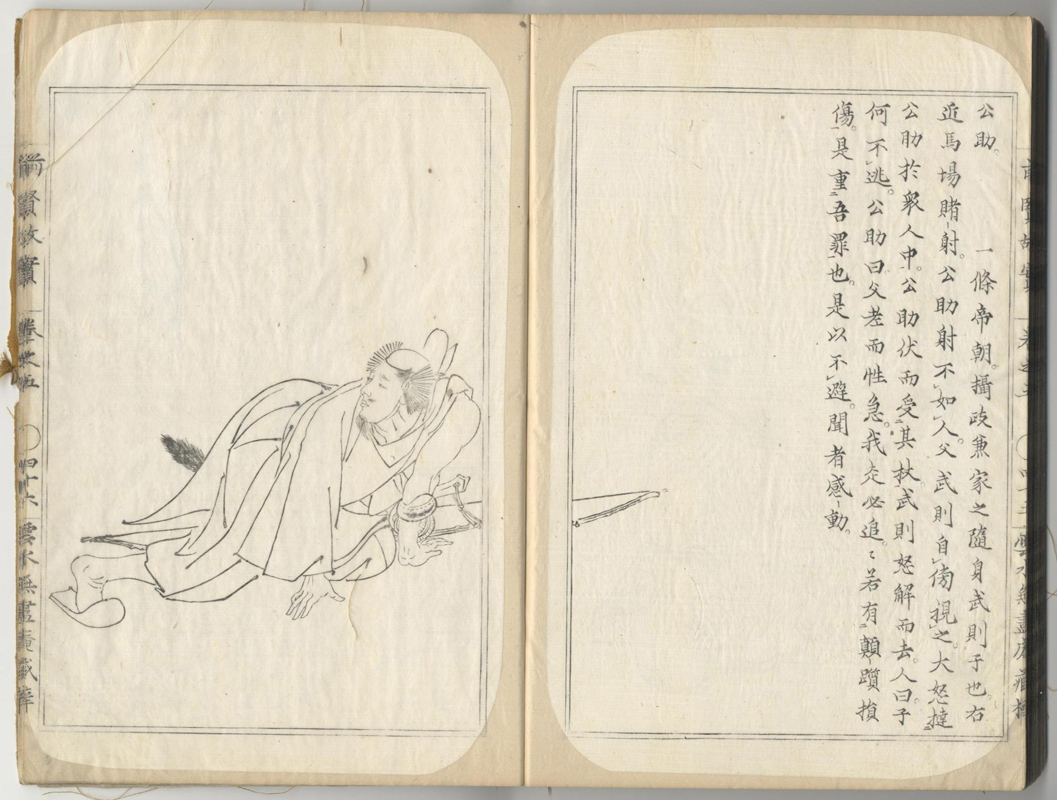 公助。　一條帝朝。攝政兼家之隨身武則子也。右
近馬場賭射。公助射不如人。父武則自傍視之大怒。撻
公助於衆人中。公助伏而受其杖。武則怒解而去。人曰。子
何不逃。公助曰。父老而性急。我走必追。ミ若有顛躓損
傷。是重吾罪也。是以不避。聞者感動。
前賢故實
卷之五
四十六
雲水無盡庵藏梓